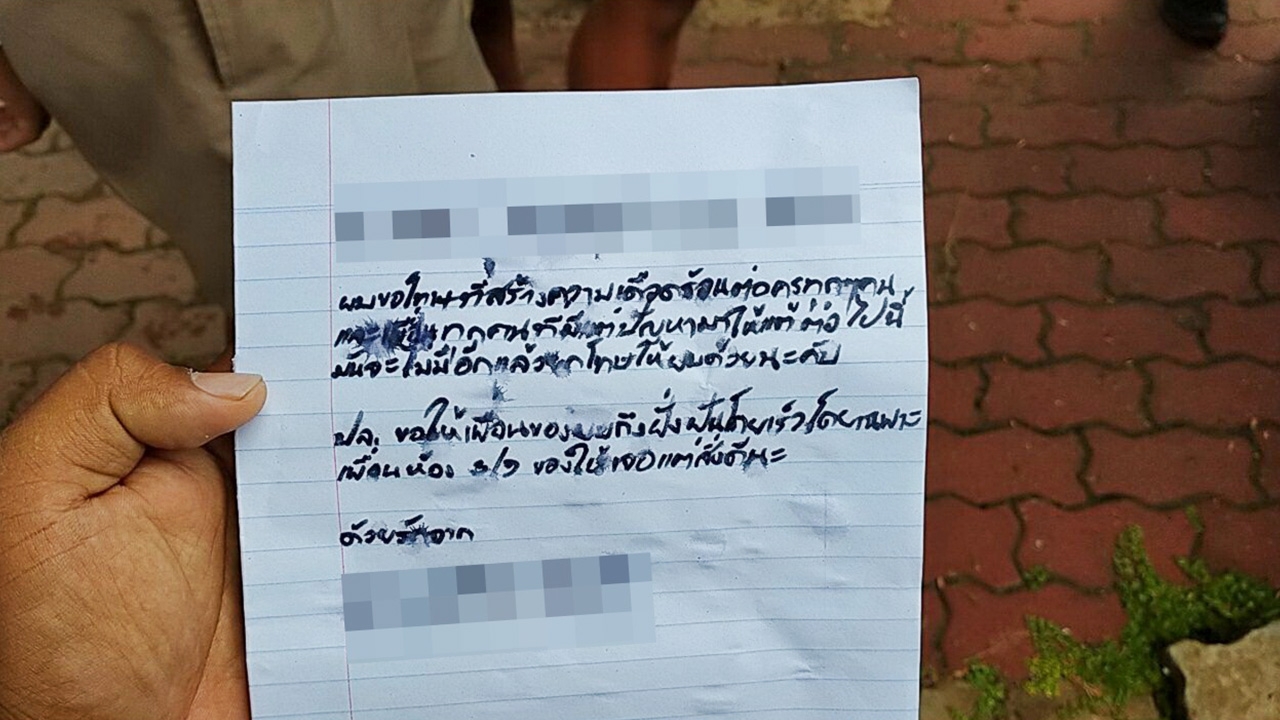 ผมขอโทษที่สร้างความเดือดร้อนต่อครูทุกๆคน
และเพื่อนทุกคนที่มีแต่ปัญหามาให้แต่ต่อไปนี้
มันจะไม่มีอีกแล้วยกโทษให้ผมด้วยนะคับ
ปล. ขอให้เพื่อนของผมถึงฝั่งฝันโดยเร็วโดยเฉพาะ
เพื่อนห้อง ขอให้เจอแต่สิ่งดีนะ
ด้วยรักจาก